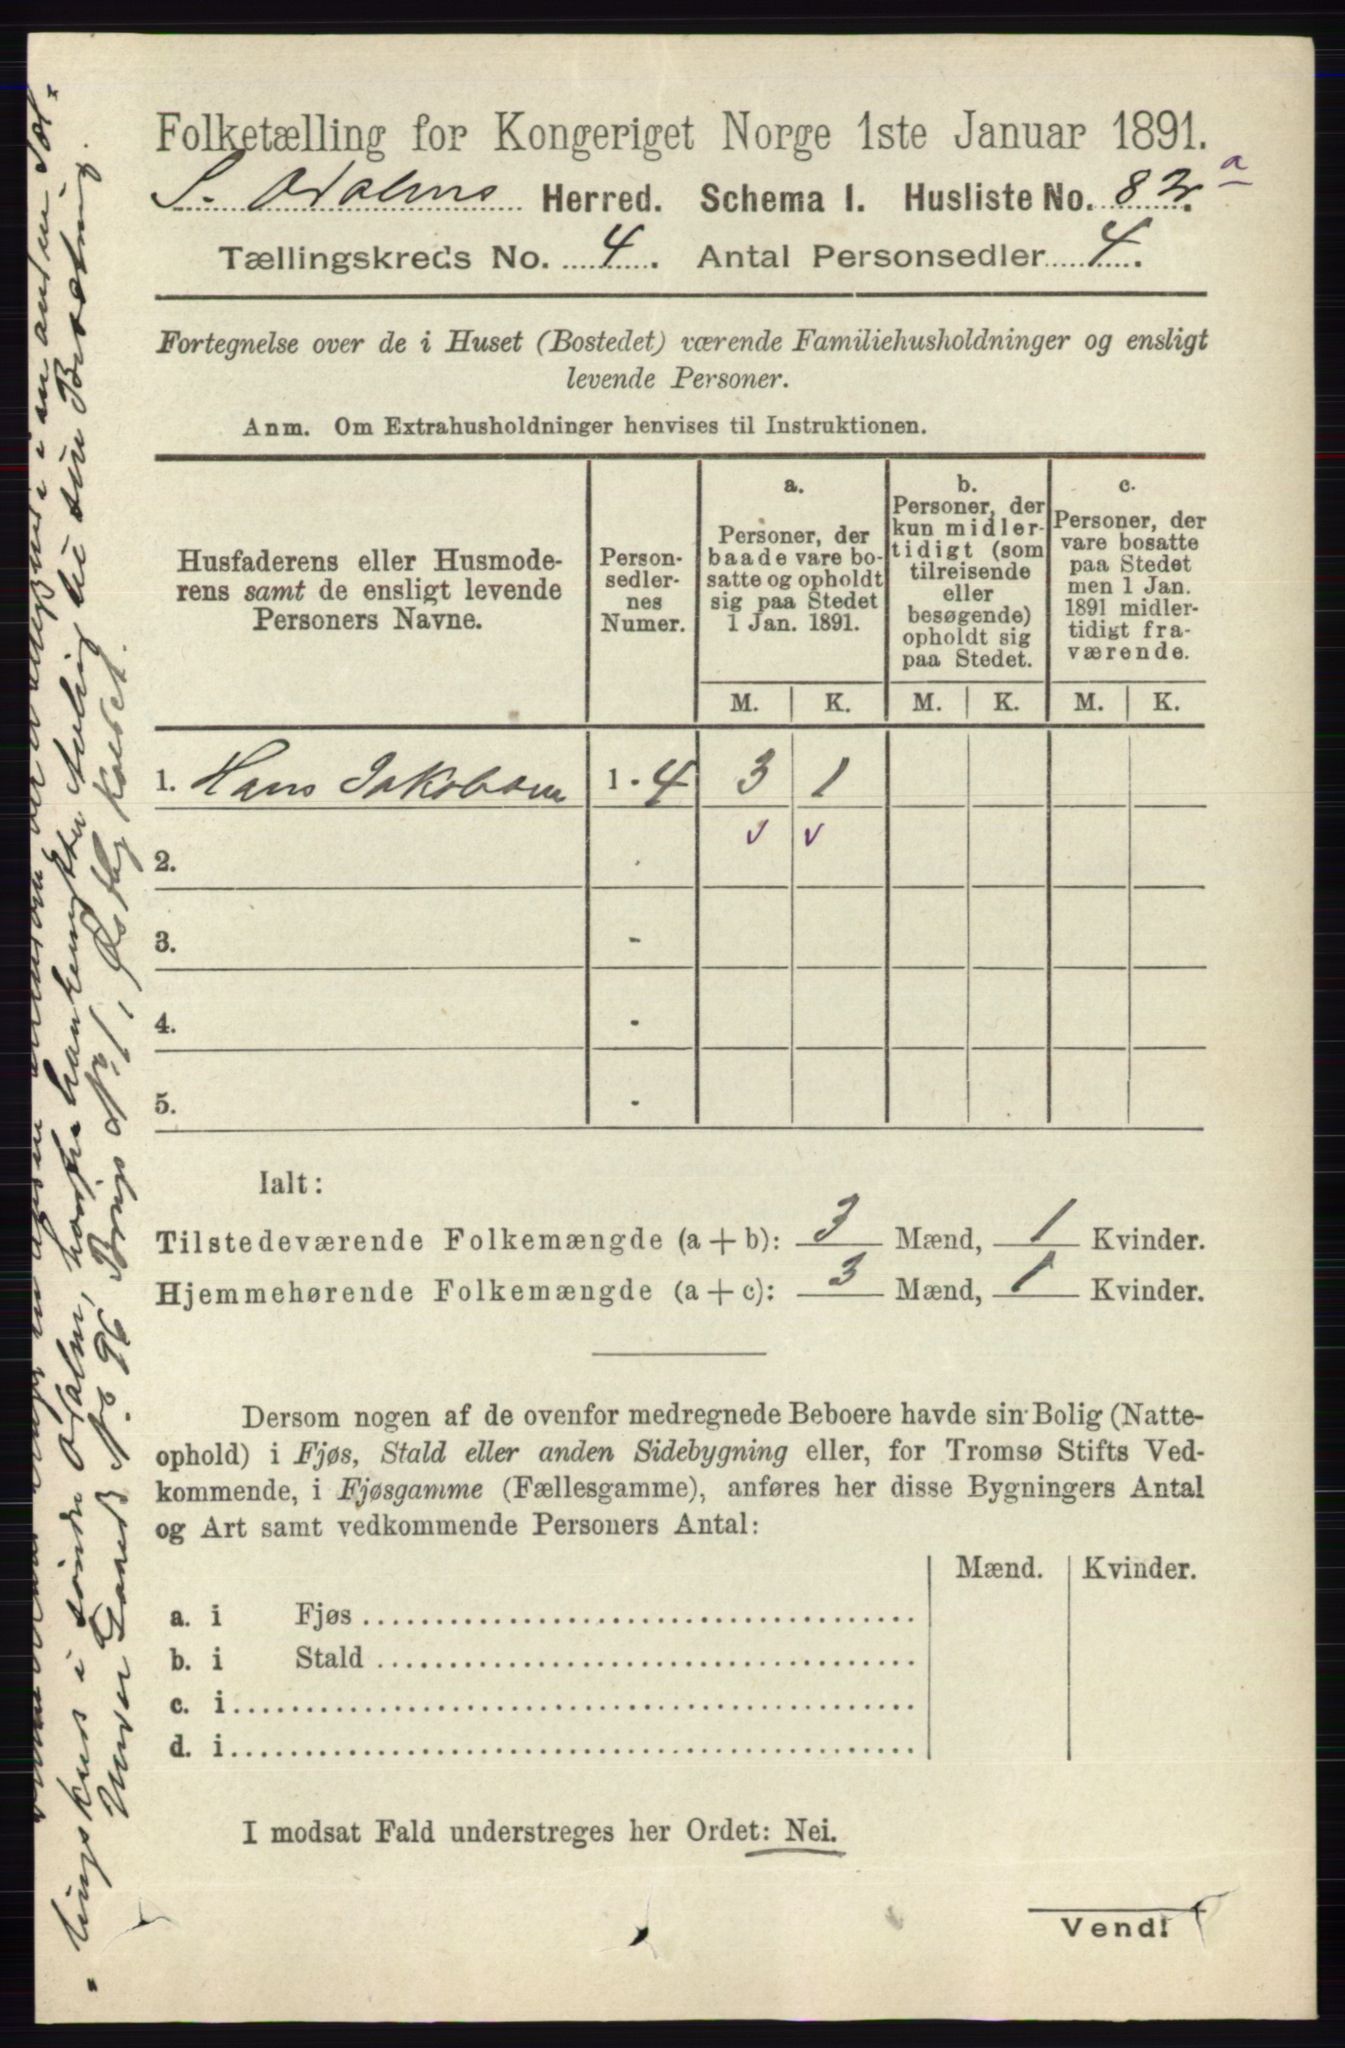 Folketælling for Kongeriget Norge 1ste Januar 1891.
S. Odalens Herred. Schema I. Husliste No. 82. a
Tællingskreds No. 4. Antal Personsedler 4.
Fortegnelse over de i Huset (Bostedet) værende Familiehusholdninger og ensligt
levende Personer.
Anm. Om Extrahusholdninger henvises til Instruktionen.
Husfaderens eller Husmode-
rens samt de ensligt levende
Personers Navne.
Person-
sedler-
nes
Numer.
a.
Personer, der
baade vare bo-
satte og opholdt
sig paa Stedet
1 Jan. 1891.
b.
Personer, der
kun midler-
tidigt (som
tilreisende
eller
besøgende)
opholdt sig
paa Stedet.
c.
Personer, der
vare bosatte
paa Stedet
men 1 Jan.
1891 midler-
tidigt fra-
værende.
M. K. M. K. M. K.
1. Hans Jakobsen 1 - 4 3 1
2.
3. -
4. -
5. -
Ialt:
Tilstedeværende Folkemængde (a + b): 3 Mænd, 1 Kvinder.
Hjemmehørende Folkemængde (a + c): 3 Mænd, 1 Kvinder.
Dersom nogen af de ovenfor medregnede Beboere havde sin Bolig (Natte-
ophold) i Fjøs, Stald eller anden Sidebygning eller, for Tromsø Stifts Ved-
kommende, i Fjøsgamme (Fællesgamme), anføres her disse Bygningers Antal
og Art samt vedkommende Personers Antal:
Mænd. Kvinder.
a. i Fjøs
b. i Stald
c. i
d. i
I modsat Fald understreges her Ordet: Nei.
Vend!
i en anden Tæl-
lingskreds i søndre Odalen, hvorfra han Avling til sin Besætning.
under Gaards No 96, Brugs No 1, kaldet.